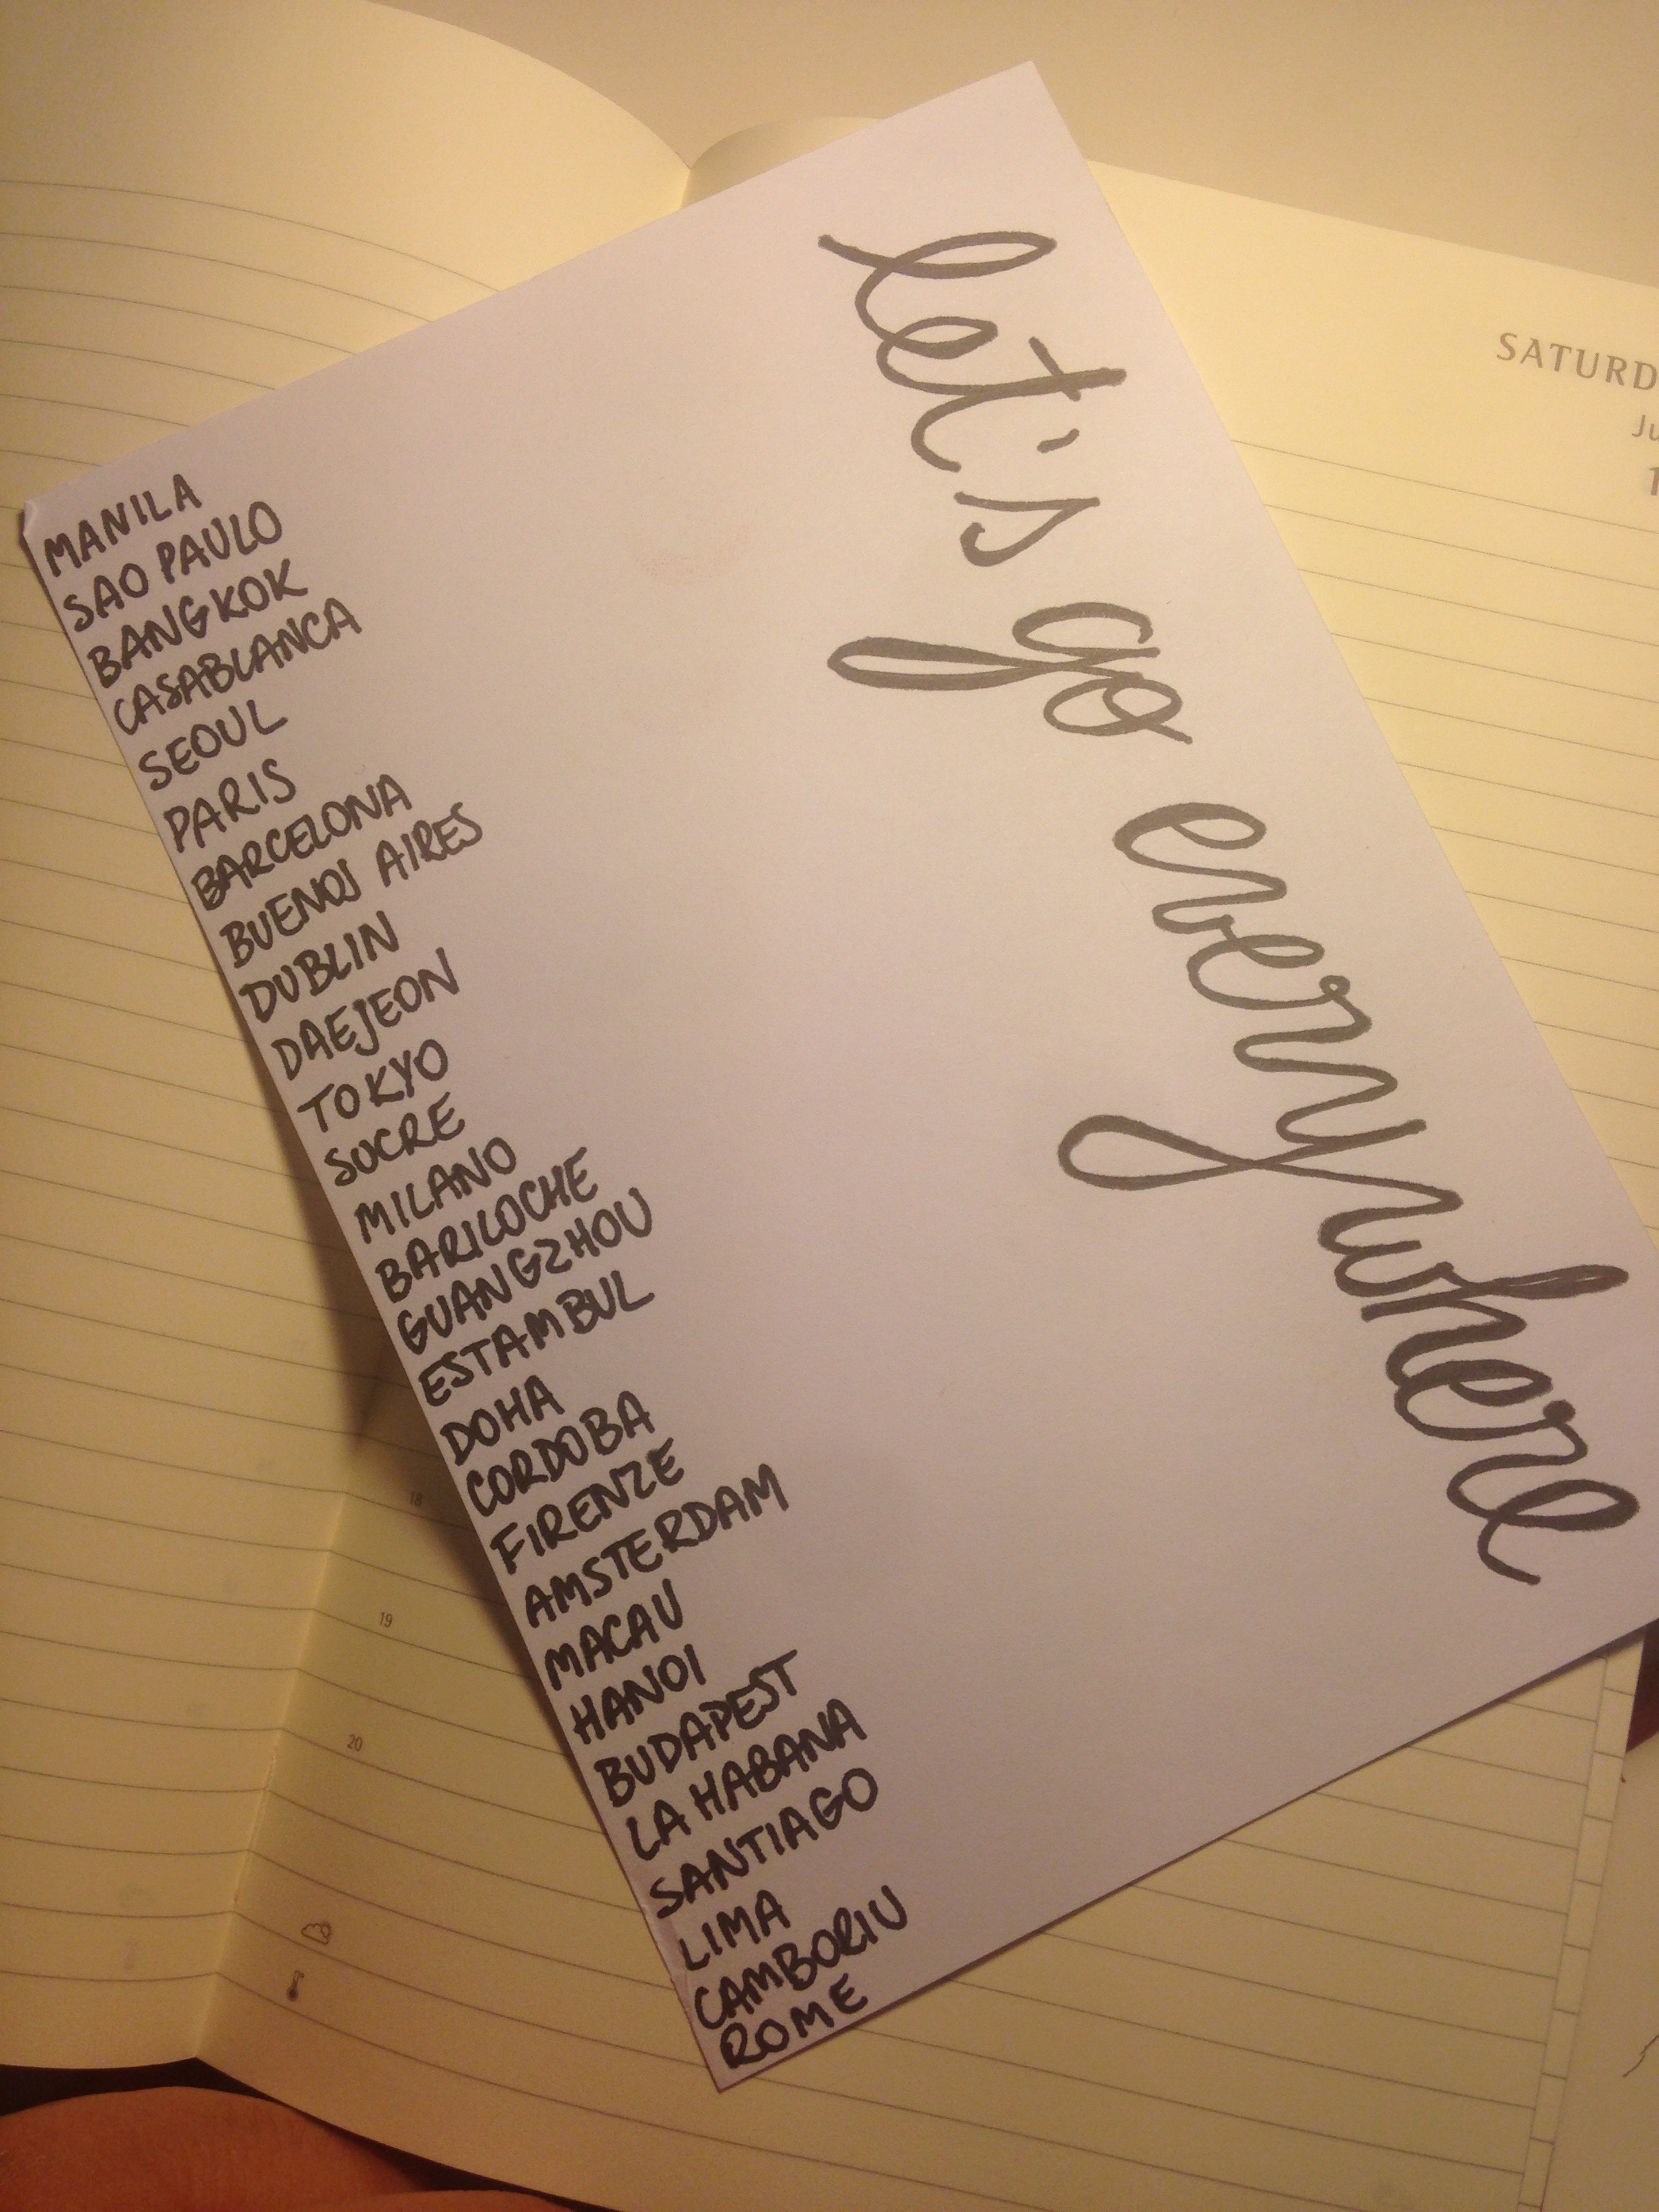 let's go everywhere
MANILA
SAO PAULO
BANGKOK
CASABLANCA
SEOUL
PARIS
BARCELONA
BUENOS AIRES
DUBLIN
DAEJEON
TOKYO
SUCRE
MILANO
BARILOCHE
GUANGZHOU
ESTAMBUL
DOHA
CORDOBA
FIRENZE
AMSTERDAM
MACAU
HANOI
BUDAPEST
LA HABANA
SANTIAGO
LIMA
CAMBORIU
ROME
SATURD
Ju
1
18
19
20